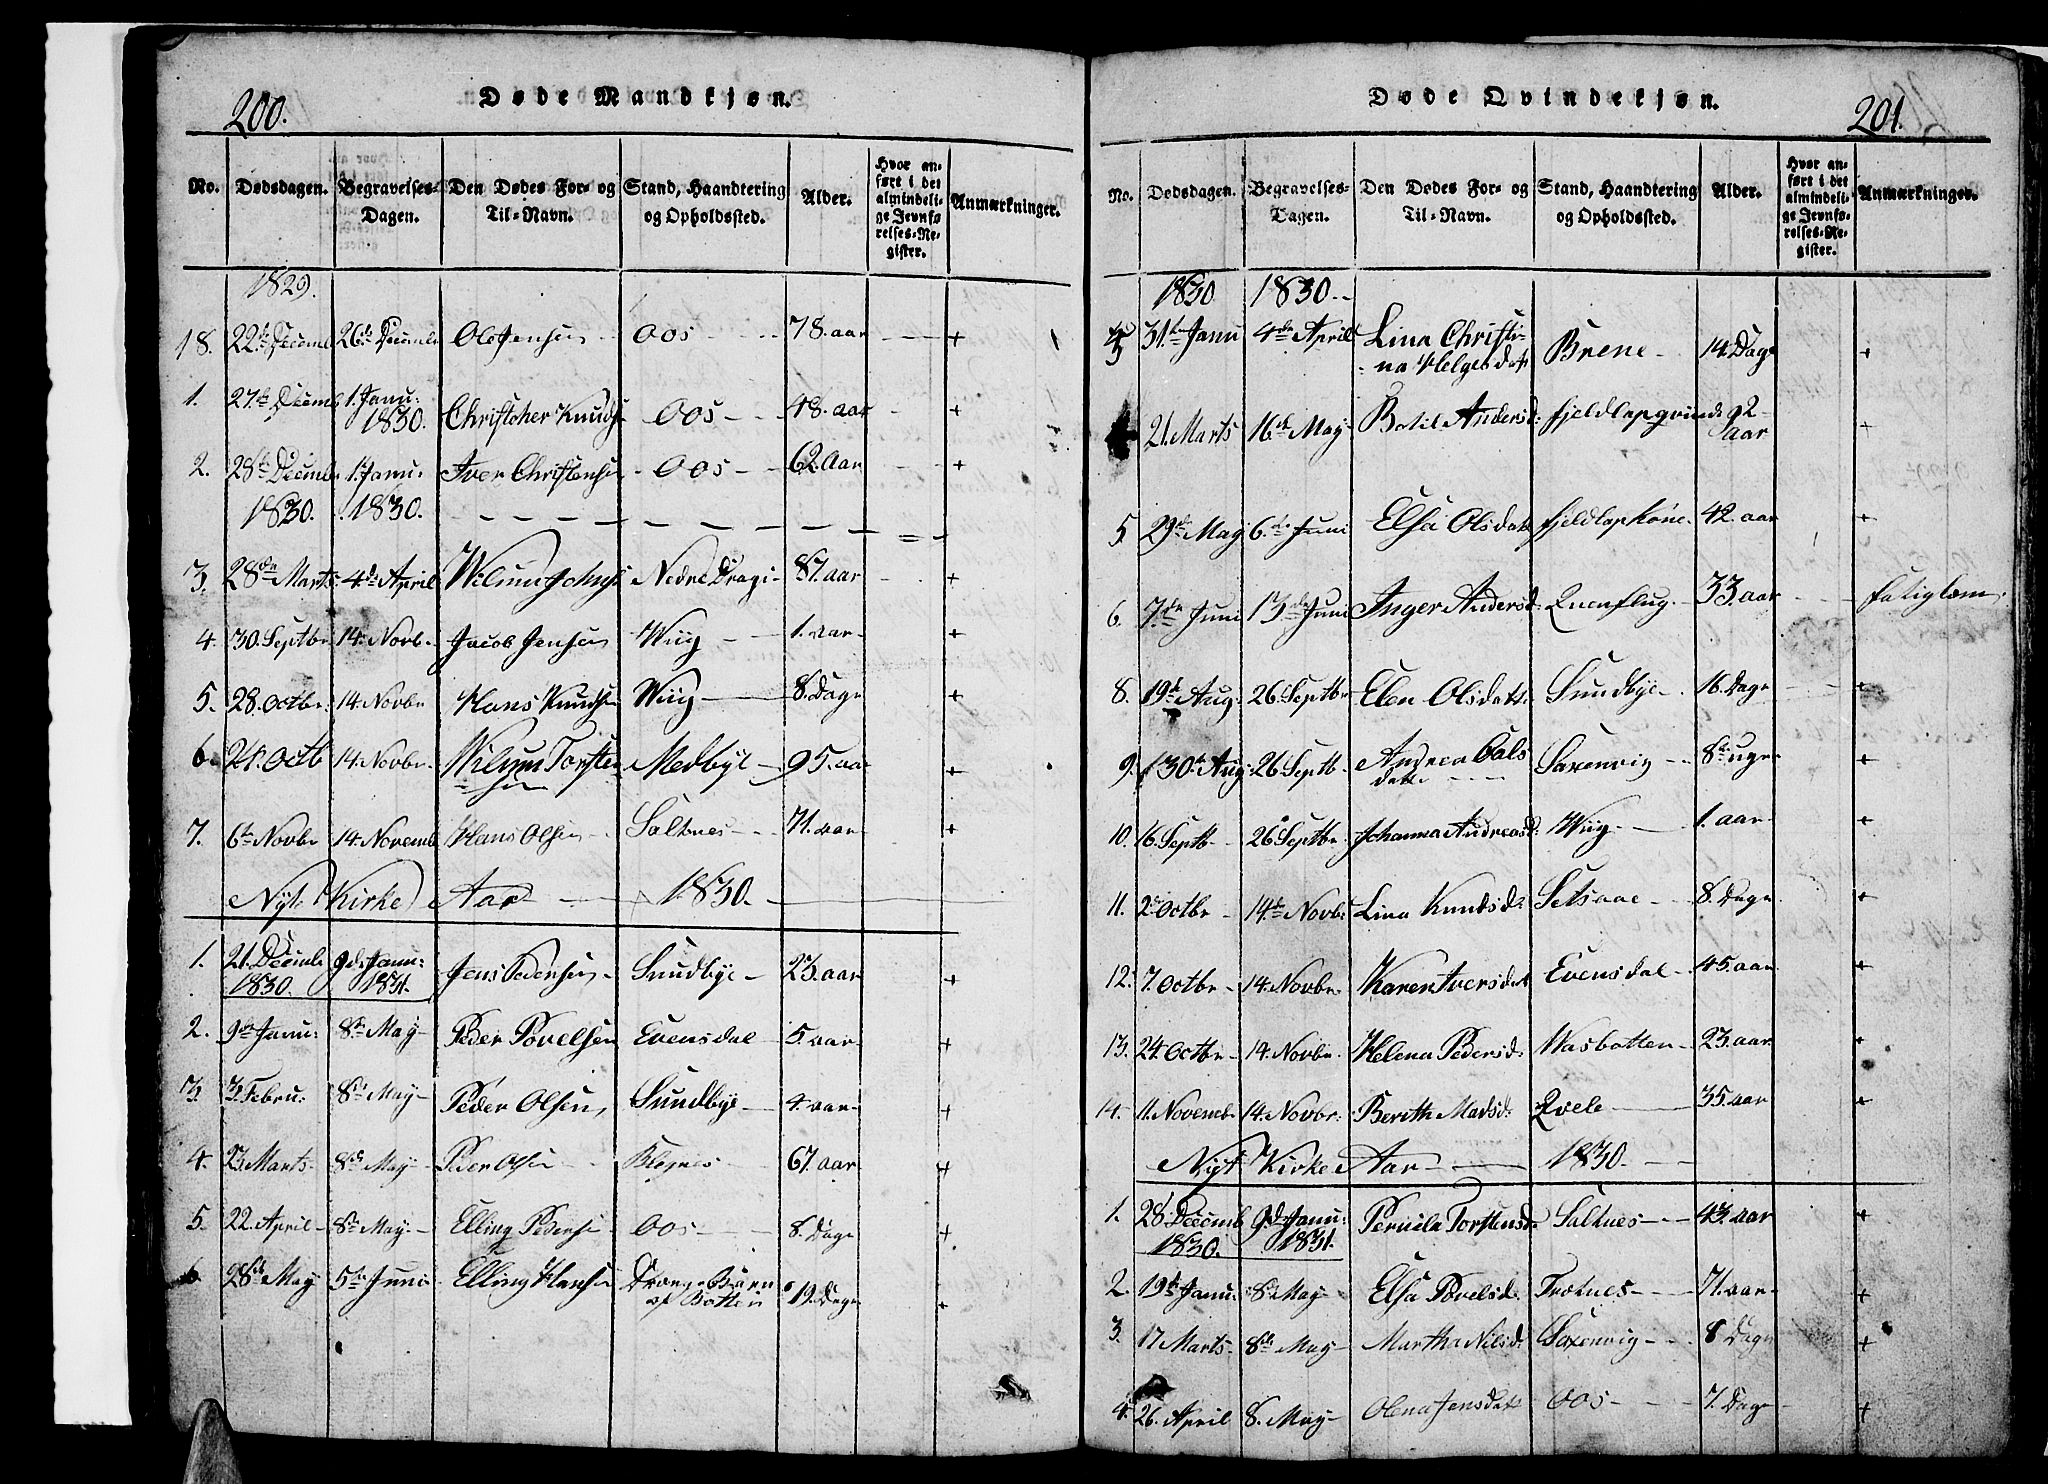 200.
Døde Mandkjøn.
No. Dødsdagen. Begravelses-Dagen. Den Dødes For- og Til-Navn. Stand, Haandtering og Opholdssted. Alder. Hvor anført i det almindelige Jevnførelses-Register. Anmærkninger.
1829.
18. 22de Decemb 26de Decemb Ole Jensen Oos 78. aar +
1. 27de Decemb 1. Janu: 1830. Christopher Knuds Oos 48. aar +
2. 28de Decemb 1. Janu: Iver Christensen Oos 62. Aar +
1830. 1830.
3. 28de Marts 4de April Nedre 87. aar +
4. 30. Septbr 14. Novb. Jacob Jensen Wiig 1. aar +
5. 28. Octbr 14. Novbr Hans Knudsen Wiig 8. Dage +
6. 24. Octb 14. Novbr. Torstensen Medbye 95. aar +
7. 6te Novbr 14. Novemb Hans Olsen Saltnes 71. aar +
Nyt Kirke Aar 1830.
1. 21. Decemb 1830. 9de Janu: 1831. Jens Pedersen Sundbye 23. aar +
2. 9de Janu: 8de May Peder Povelsen Evensdal 5. aar +
3. 3. Febru: 8de May Peder Olsen Sundbye 4. aar +
4. 23. Marts 8de May Peder Olsen 67. aar +
5. 22. April 8de May Elling Pedersen Oos 8. Dage +
6. 28de May 5te Juni Elling Hansen Botten 19. Dage +
Døde Qvindekjøn.
201.
No. Dødsdagen. Begravelses-Dagen. Den Dødes For- og Til-Navn. Stand, Haandtering og Opholdssted. Alder. Hvor anført i det almindelige Jevnførelses-Register. Anmærkninger.
1830 1830.
31te Janu 4de April Lina Christina Helgesdat Brene 14. Dage +
21. Marts 16de May Botil Andersd: fjeldlap 92 aar +
5. 29de May 6te Juni Elsa Olsdatt fjeldlapkone. 42. aar +
6. 7de Juni 13de Juni Inger Andersd: Qvenflug 33. aar fatiglem
8. 19de Aug: 26. Septbr Elen Olsdatt. Sundbye 16. Dage +
9. 30te Aug: 26 Septb. Andrea Oolsdatt Saxenvig 8te uger +
10. 16 Septb 26 Septbr. Johanna Andreasd: Wiig 1. aar +
11. 2. Octbr 14de Novbr Lina Knudsd: Setsaae 8. Dage +
12. 7. Octbr 14. Novbr Karen Iversdat Evensdal 45. aar +
13. 24. Octbr 14. Novbr Helena Pedersd: Wasbotten 23. aar +
14. 11. Novemb 14. Novbr: Berith Madsd: Qvele 35. aar +
Nyt Kirke Aar 1830.
1. 28. Decemb 1830. 9de Janu: 1831. Pernila Torstensd: Saltnes 43. aar +
2. 19de Janu: 8de May Elsa Povelsd: 71. aar +
3. 17 Marts 8de May Martha Nilsd: Saxenvig 8 Dage +
4. 26. April 8. May Olena Jensdatt Oos 7. Dage +